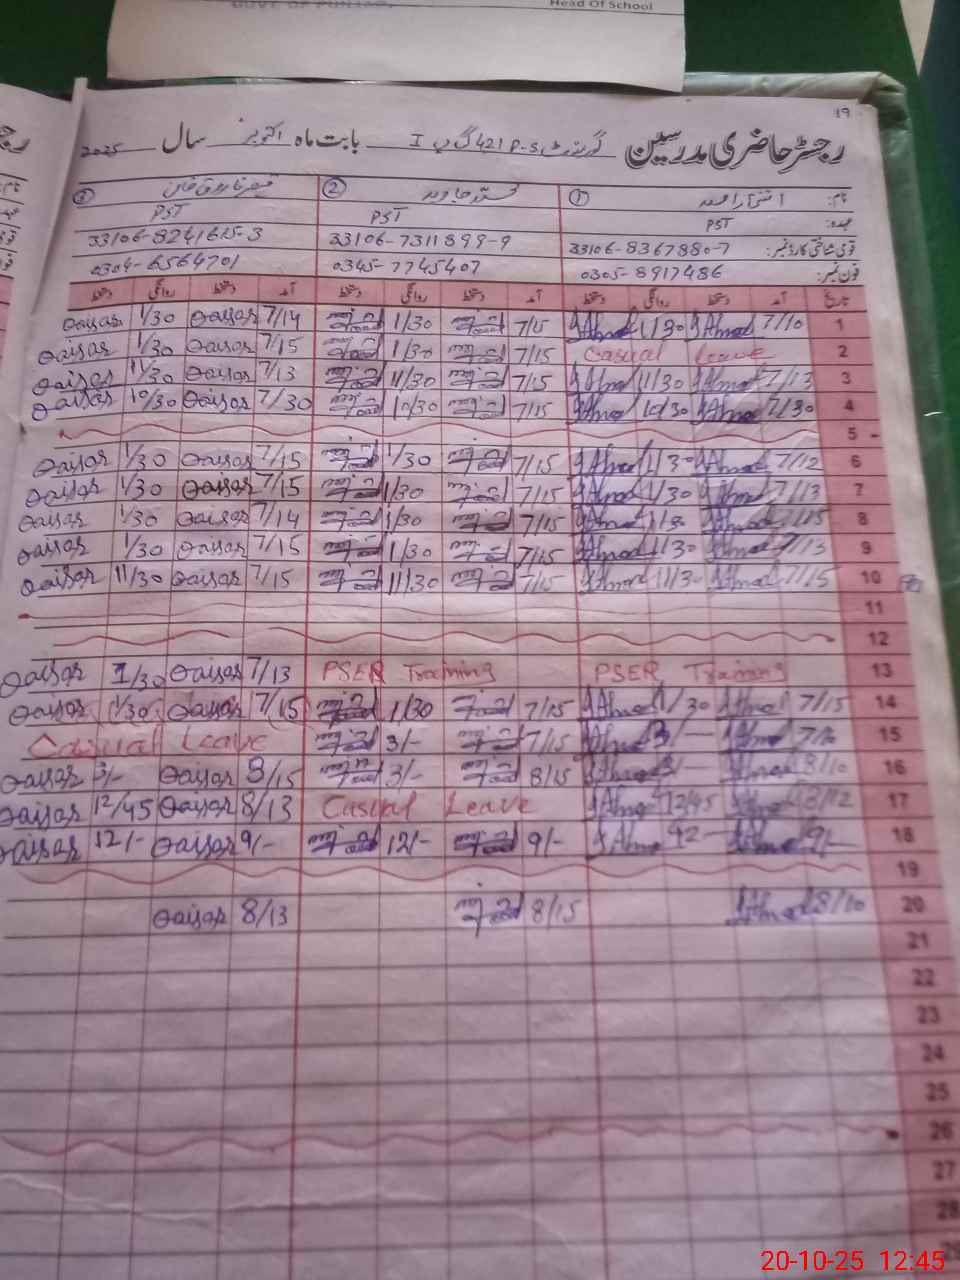 GOVT OF PUNJAB,
Head Of School
۱۹
رجسٹر حاضری مدرسین گورنمنٹ P-S 421 گ ب I بابت ماہ اکتوبر سال 2025
نام: ① ② ③
عہدہ: PST PST PST
قومی شناختی کارڈ نمبر: 33106-8367880-7 33106-7311899-9 33106-8241615-3
فون نمبر: 0305-8917486 0345-7745407 0304-6564701
تاریخ آمد دستخط روانگی دستخط آمد دستخط روانگی دستخط آمد دستخط روانگی دستخط
Qaisar 1/30 Qaisar 7/14 1/30 7/15 Ahmad 1/30 Ahmad 7/10 1
Qaisar 1/30 Qaisar 7/15 1/30 7/15 Casual Leave 2
Qaisar 11/30 Qaisar 7/13 11/30 7/15 Ahmad 11/30 Ahmad 7/13 3
Qaisar 10/30 Qaisar 7/30 10/30 7/15 Ahmad 10/30 Ahmad 7/30 4
5
Qaisar 1/30 Qaisar 7/15 1/30 7/15 Ahmad 1/30 Ahmad 7/12 6
Qaisar 1/30 Qaisar 7/15 1/30 7/15 Ahmad 1/30 Ahmad 7/13 7
Qaisar 1/30 Qaisar 7/14 1/30 7/15 Ahmad 1/30 Ahmad 7/15 8
Qaisar 1/30 Qaisar 7/15 1/30 7/15 Ahmad 1/30 Ahmad 7/13 9
Qaisar 11/30 Qaisar 7/15 11/30 7/15 Ahmad 11/30 Ahmad 7/15 10
11
12
Qaisar 1/30 Qaisar 7/13 PSER Training PSER Training 13
Qaisar 1/30 Qaisar 7/15 1/30 7/15 Ahmad 1/30 Ahmad 7/15 14
Casual Leave 3/- 7/15 Ahmad 3/- Ahmad 15
Qaisar 3/- Qaisar 8/15 3/- 8/15 Ahmad 3/- Ahmad 8/10 16
Qaisar 12/45 Qaisar 8/13 Casual Leave Ahmad 12/45 Ahmad 8/12 17
Qaisar 12/- Qaisar 9/- 12/- 9/- Ahmad 12 - Ahmad 9/- 18
19
Qaisar 8/13 8/15 Ahmad 8/10 20
21
22
23
24
25
26
27
28
20-10-25 12:45